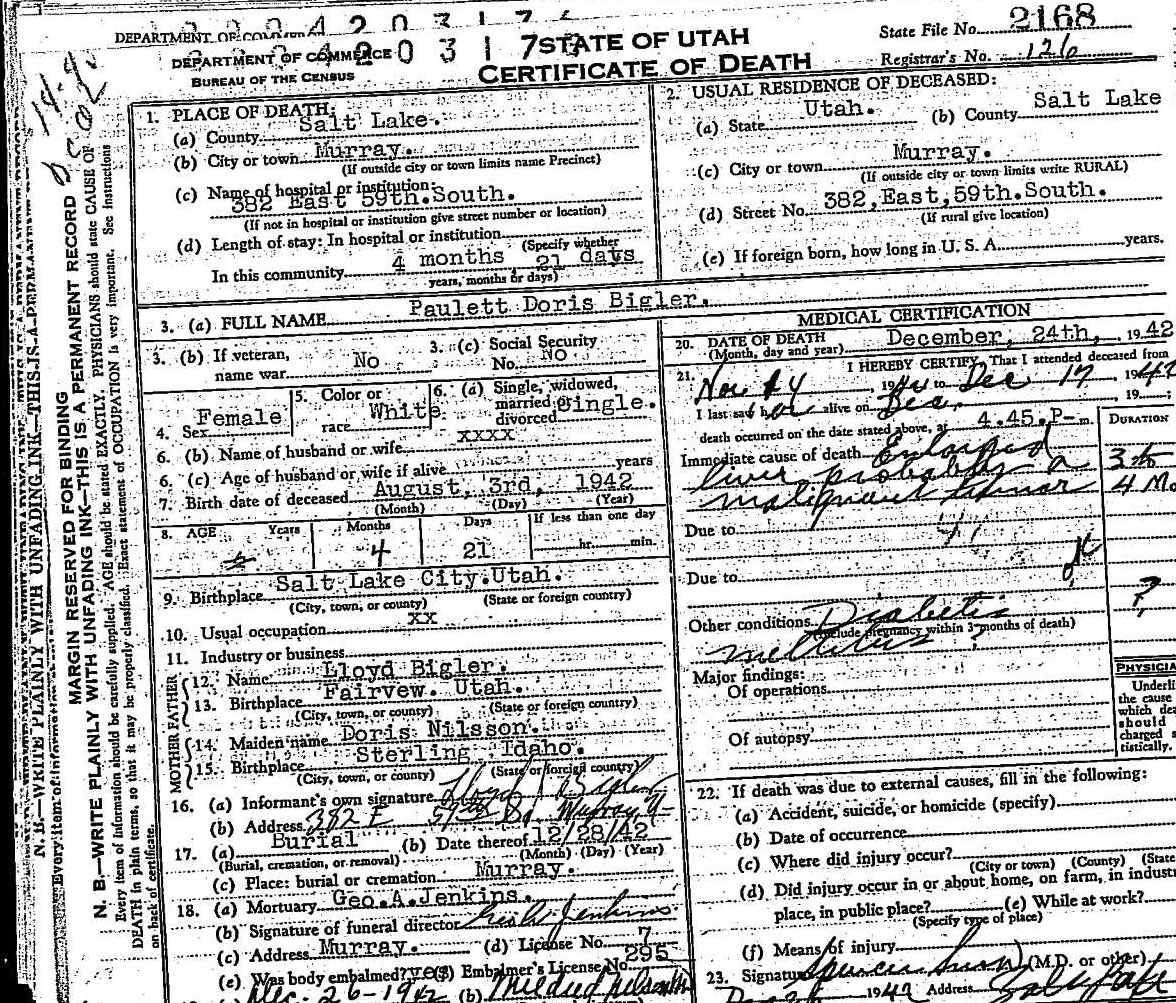 2168
DEPARTMENT OF COMMERCE
BUREAU OF THE CENSUS
STATE OF UTAH
CERTIFICATE OF DEATH
State File No. 2168
Registrar's No. 126
MARGIN RESERVED FOR BINDING
N. B.—WRITE PLAINLY WITH UNFADING INK—THIS IS A PERMANENT RECORD
Every item of information should be carefully supplied. AGE should be stated EXACTLY. PHYSICIANS should state CAUSE OF
DEATH in plain terms, so that it may be properly classified. Exact statement of OCCUPATION is very important. See instructions
on back of certificate.
1. PLACE OF DEATH:
(a) County Salt Lake.
(b) City or town Murray.
(If outside city or town limits name Precinct)
(c) Name of hospital or institution:
382 East 59th.South.
(If not in hospital or institution give street number or location)
(d) Length of stay: In hospital or institution
(Specify whether
In this community 4 months 21 days
years, months or days)
2. USUAL RESIDENCE OF DECEASED:
(a) State Utah. (b) County Salt Lake
(c) City or town Murray.
(If outside city or town limits write RURAL)
(d) Street No. 382,East,59th.South.
(If rural give location)
(e) If foreign born, how long in U. S. A. years.
3. (a) FULL NAME Paulett Doris Bigler.
3. (b) If veteran,
name war No
3. (c) Social Security
No. No
4. Sex Female
5. Color or
race White
6. (a) Single, widowed,
married or
divorced Single.
6. (b) Name of husband or wife xxxx
6. (c) Age of husband or wife if alive years
7. Birth date of deceased August, 3rd, 1942
(Month) (Day) (Year)
8. AGE Years Months Days If less than one day
4 21 hr. min.
9. Birthplace Salt Lake City.Utah.
(City, town, or county) (State or foreign country)
10. Usual occupation xx
11. Industry or business
FATHER
12. Name Lloyd Bigler.
13. Birthplace Fairvew. Utah.
(City, town, or county) (State or foreign country)
MOTHER
14. Maiden name Doris Nilsson.
15. Birthplace Sterling, Idaho.
(City, town, or county) (State or foreign country)
16. (a) Informant's own signature Lloyd Bigler
(b) Address 382 E 59th So. Murray
17. (a) Burial (b) Date thereof 12/28/42
(Burial, cremation, or removal) (Month) (Day) (Year)
(c) Place: burial or cremation Murray.
18. (a) Mortuary Geo.A.Jenkins.
(b) Signature of funeral director Geo A Jenkins
(c) Address Murray. (d) License No. 7
(e) Was body embalmed? yes (f) Embalmer's License No. 295
Dec. 26-1942 (b) Mildred
MEDICAL CERTIFICATION
20. DATE OF DEATH
(Month, day and year) December, 24th, 1942
21. I HEREBY CERTIFY, That I attended deceased from
Nov 19 to Dec 17, 1942
I last saw h alive on Dec. 19 ;
death occurred on the date stated above, at 4.45.P- m.
DURATION
Immediate cause of death Enlarged
liver probably a
malignant tumor
3 to
4 Mo
Due to
Due to
Other conditions Diabetis
(Include pregnancy within 3 months of death)
mellitus ?
?
Major findings:
Of operations
Of autopsy
PHYSICIA
Underli
the cause
which dea
should
charged s
tistically.
22. If death was due to external causes, fill in the following:
(a) Accident, suicide, or homicide (specify)
(b) Date of occurrence
(c) Where did injury occur?
(City or town) (County) (State
(d) Did injury occur in or about home, on farm, in industr
place, in public place? (e) While at work?
(Specify type of place)
(f) Means of injury
23. Signature Spencer (M.D. or other)
1942 Address